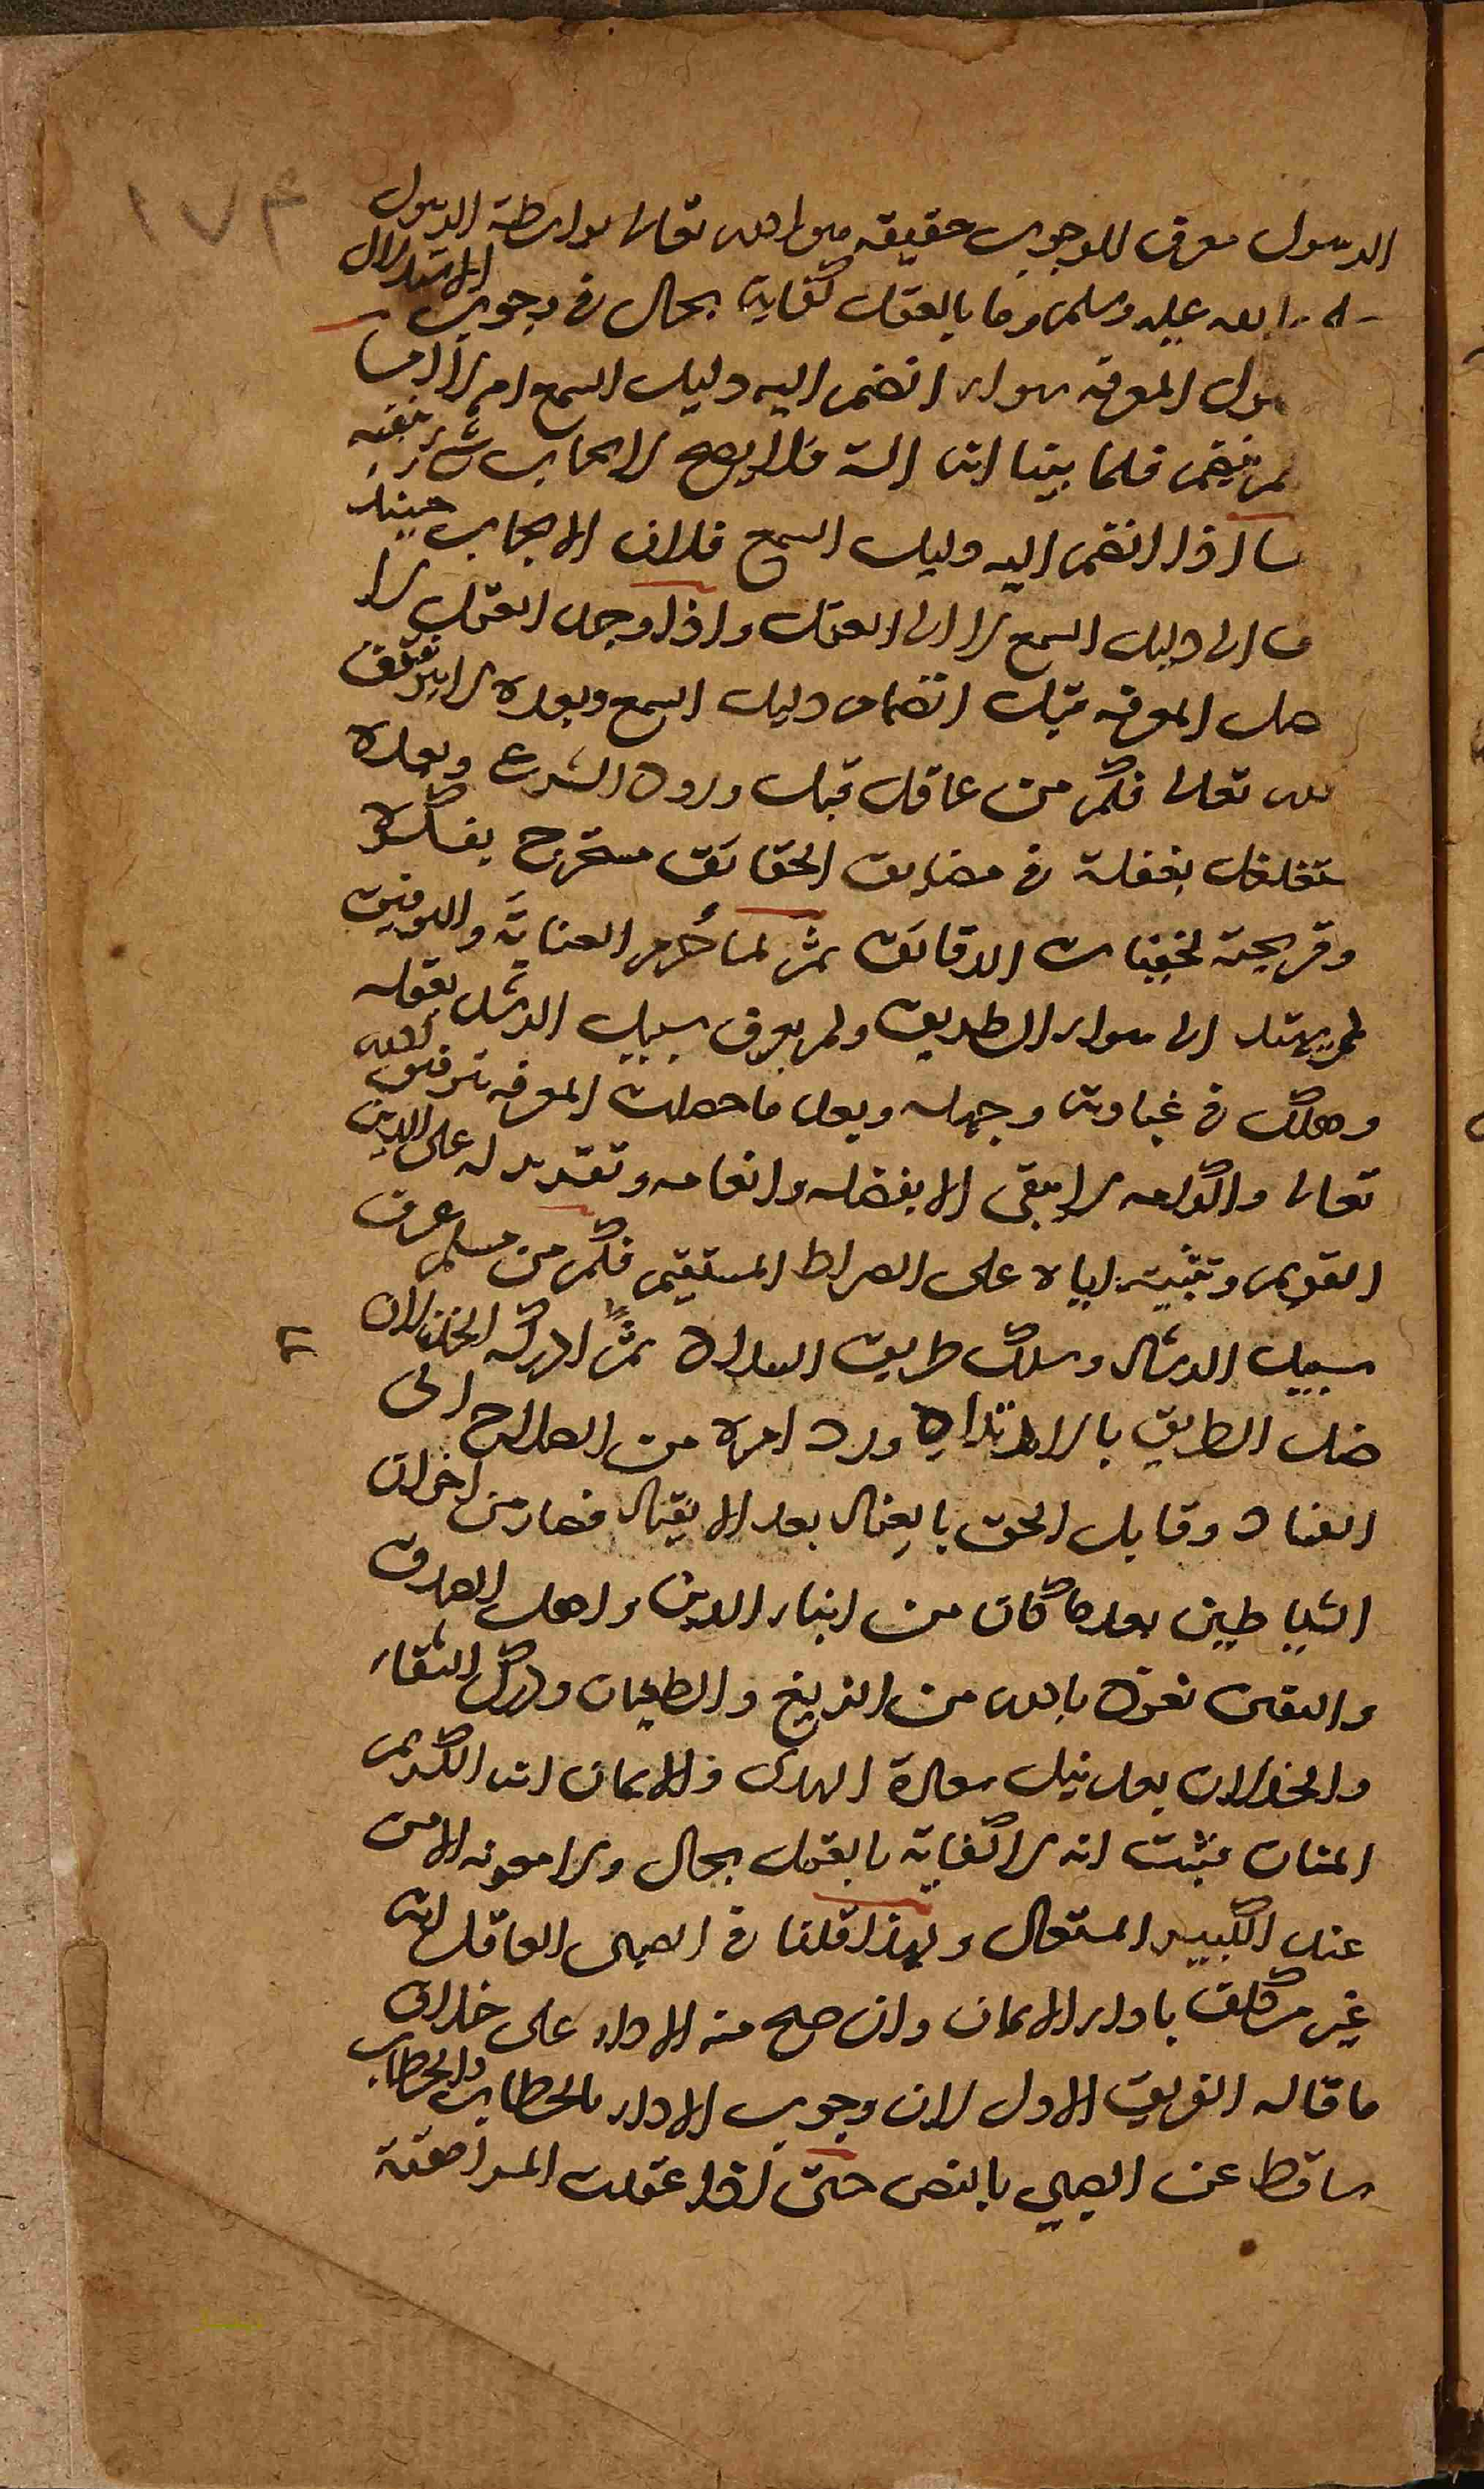 ١٧٤
الرسول معرف للوجوب حقيقه هو الله تعالى بواسطة الرسول
الله عليه وسلم وما بالعقل كفاية بحال في وجوب الاستدلال
المعرفه سواء انضم اليه دليل السمع ام لا اما
لم ينضم فلما بينا ان الة فلا يصلح لايجاب شي بنفسه
اذا انضم اليه دليل السمع فلان الايجاب حينئذ
الى دليل السمع لا الى العقل واذا وجد العقل لا
المعرفه قبل انضمام دليل السمع وبعده لا بتوفيق
الله تعالى فكم من عاقل قبل ورود الشرع وبعده
متغلغل بعقله في مضايق الحقائق مستخرج بفكره
وقريحته لخفيات الدقائق ثم لما حُرم العناية والتوفيق
لم يهتد الى سواء الطريق ولم يعرف سبيل الرشد بعقله
وهلك في غباوته وجهله وبعد ما حصلت المعرفه بتوفيق الله
تعالى واكرامه لا يبقى الا بفضله وانعامه وتقديره له على الدين
القويم وتثبيته اياه على الصراط المستقيم فكم من مسلم عرف
سبيل الرشاد وسلك طريق السداد ثم ادركه الخذلان
ضل الطريق بالارتداد ورد امره من الصلاح الى
الفساد وقابل الحق بالعناد بعد الانقياد فصار من اخوان
الشياطين بعد ما كان من ابناء الدين واهل الصدق
واليقين نعوذ بالله من الزيغ والطغيان ودرك الشقاء
والخذلان بعد نيل سعادة الهدى والايمان انه الكريم
المنان فثبت انه لا كفاية بالعقل بحال ولا معونه الا من
عند الكبير المتعال ولهذا قلنا في الصبى العاقل انه
غير مكلف باداء الايمان وان صح منه الاداء على خلاف
ما قاله الفريق الاول لان وجوب الاداء بالخطاب والخطاب
ساقط عن الصبي بالنص حتى اذا عقلت المراهقة